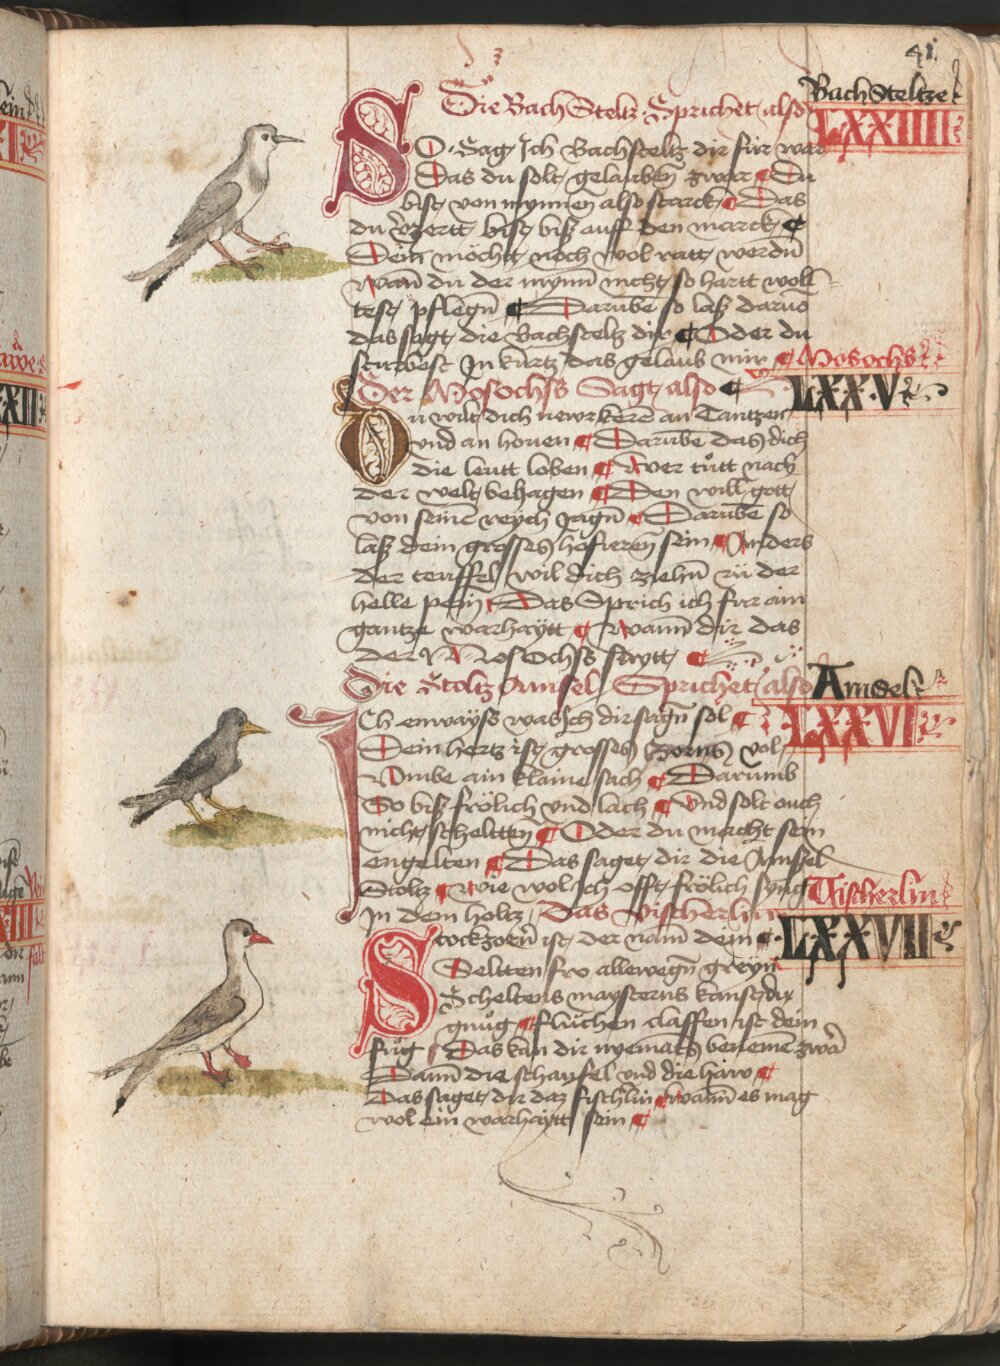 41
Die Bach Steltz Sprichet also
Bach Steltze
LXXIIII
SO Sag Ich Bachsteltz dir fur war
Das du solt gelauben zwar Du
bist von mynnen also starck Das
du v̓zertt bist bisz auff den marck
Dein möcht noch wol ratt werdn̄
Wann̄ du der mynn̄ nicht so hartt woll
test pflegn̄ Darūbe so lasz daruō
das sagt die Bachsteltz dir Oder du
sturbest In kurtz das gelaub mir
Mosochs
Der Mosochss Sagt also
LXXV
Du wilt dich newr kerē an Tantzen
vnd an houen Darūbe das dich
die leutt loben Wer tůtt nach
der welt behagen Den will gott
von seinē reych Jagn̄ Darūbe so
lasz dein grosses hofieren sein Anders
der teuffel wil dich ziehn̄ zü der
helle pein Das Sprich ich fur ain
gantze warhaytt Wann̄ dir das
der Mosochss saytt
Die Stoltz Amsel Sprichet also
Amsel
LXXVI
ICh enwayss was Ich dir sagn̄ sol
Dein hertz ist grosses zorns vol
Vmbe ain klaine sach Darumb
So bisz frölich vnd lach Vnd solt ouch
nicht scheltten Oder du mucht sein
engelten Das saget dir die Amsel
Stoltz Wie wol Ich offt frölich syng
In dem holtz Das vischerlin
Vischerlin
LXXVII
Stockzorn̄ ist der nam̄ dein
Seltten fro allewegn̄ greyn
Scheltens maysterns kanst du
gnůg flůchen claffen ist dein
fůg Das kan dir nyemats benemē zwar
Dann̄ die schaufel vnd die haw
Das saget dir daz fischlin wann̄ es mag
wol ein warhaytt sein